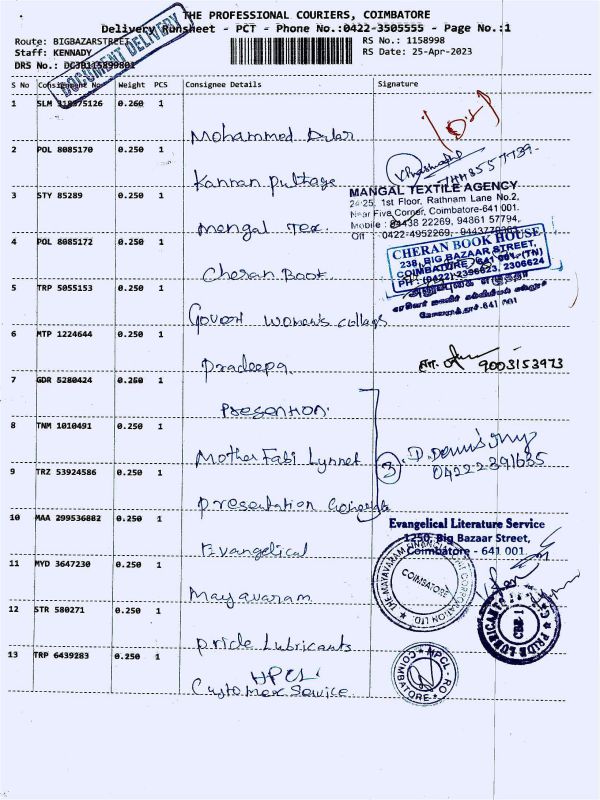 THE PROFESSIONAL COURIERS, COIMBATORE
Delivery Runsheet - PCT - Phone No.:0422-3505555 - Page No.:1
Route: BIGBAZARSTREET
RS No.: 1158998
Staff: KENNADY
RS Date: 25-Apr-2023
DRS No.:
DOCUMENT DELIVERY
S No Consignment No Weight PCS Consignee Details Signature
1 SLM 0.260 1
Mohammed
2 POL 8085170 0.250 1
Kannan
3 STY 85289 0.250 1
MANGAL TEXTILE AGENCY
24-25, 1st Floor, Rathnam Lane No.2,
Near Five Corner, Coimbatore-641 001.
Mobile : 94438 22269, 94861 57794,
Off : 0422-4952269,
mengal Tex.
4 POL 8085172 0.250 1
CHERAN BOOK HOUSE
238, BIG BAZAAR STREET,
COIMBATORE - 641 001. (TN)
PH : (0422) 2396623, 2306624
Cheran Book
5 TRP 5055153 0.250 1
Govert women's collage
6 MTP 1224644 0.250 1
9003153973
Pradeepa
7 GDR 5280424 0.250 1
Presention.
8 TNM 1010491 0.250 1
Mother Fabi Lynnet
3
9 TRZ 53924586 0.250 1
presentation
10 MAA 299536882 0.250 1
Evangelical Literature Service
1250, Big Bazaar Street,
Coimbatore - 641 001
Evangelical
11 MYD 3647230 0.250 1
COIMBATORE
Mayavaram
12 STR 580271 0.250 1
PRIDE LUBRICANTS
CBE-1
pride Lubricants
13 TRP 6439283 0.250 1
HPCL
HPCL - RO
COIMBATORE
Customer Service